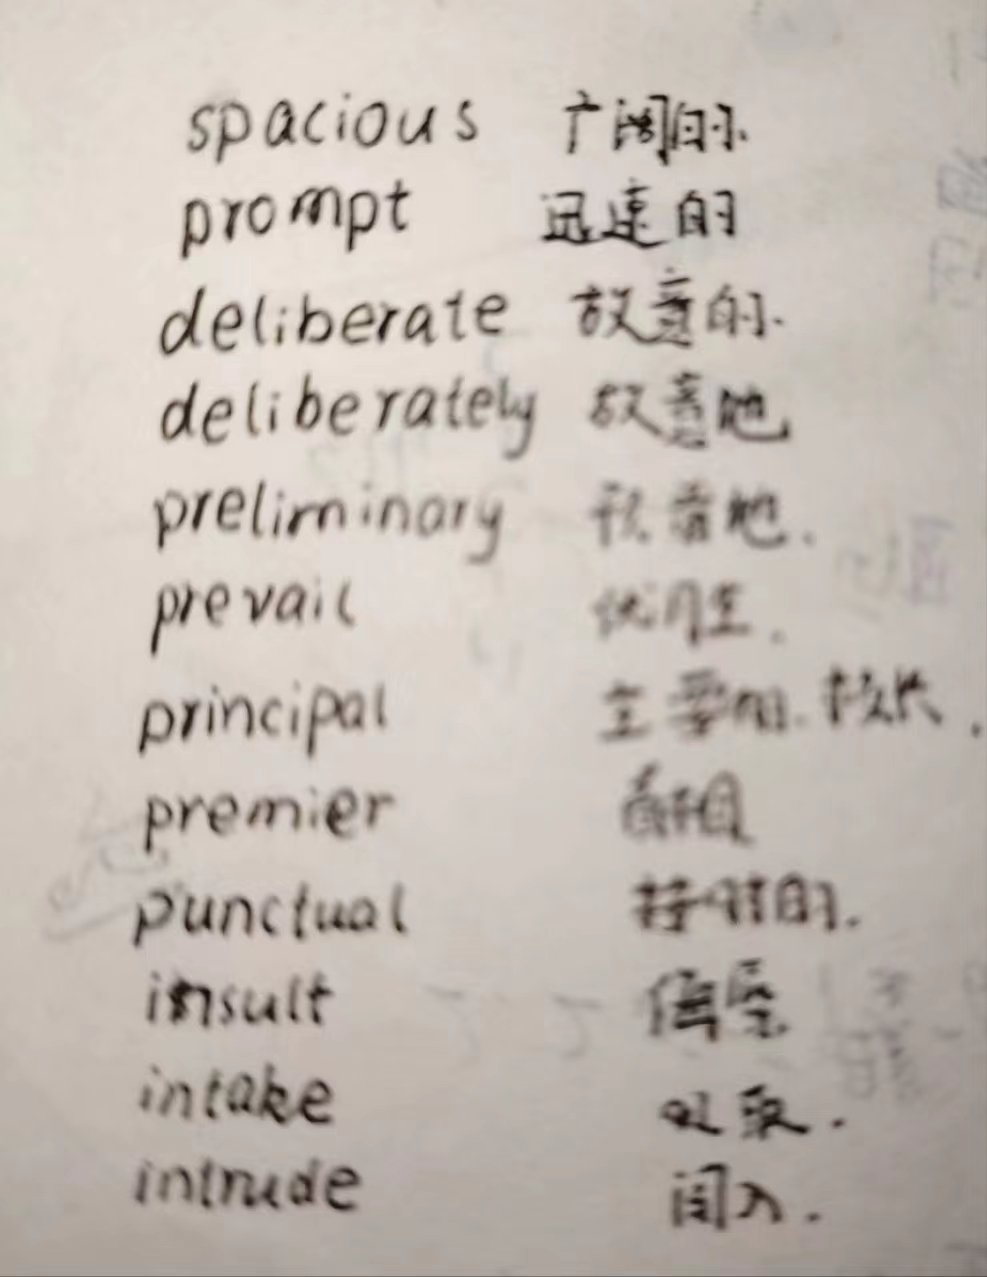 spacious 广阔的.
prompt 迅速的
deliberate 故意的.
deliberately 故意地
preliminary 预备地.
prevail 优胜.
principal 主要的. 校长.
premier 首相
punctual 准时的.
insult 侮辱
intake 吸取.
intrude 闯入.